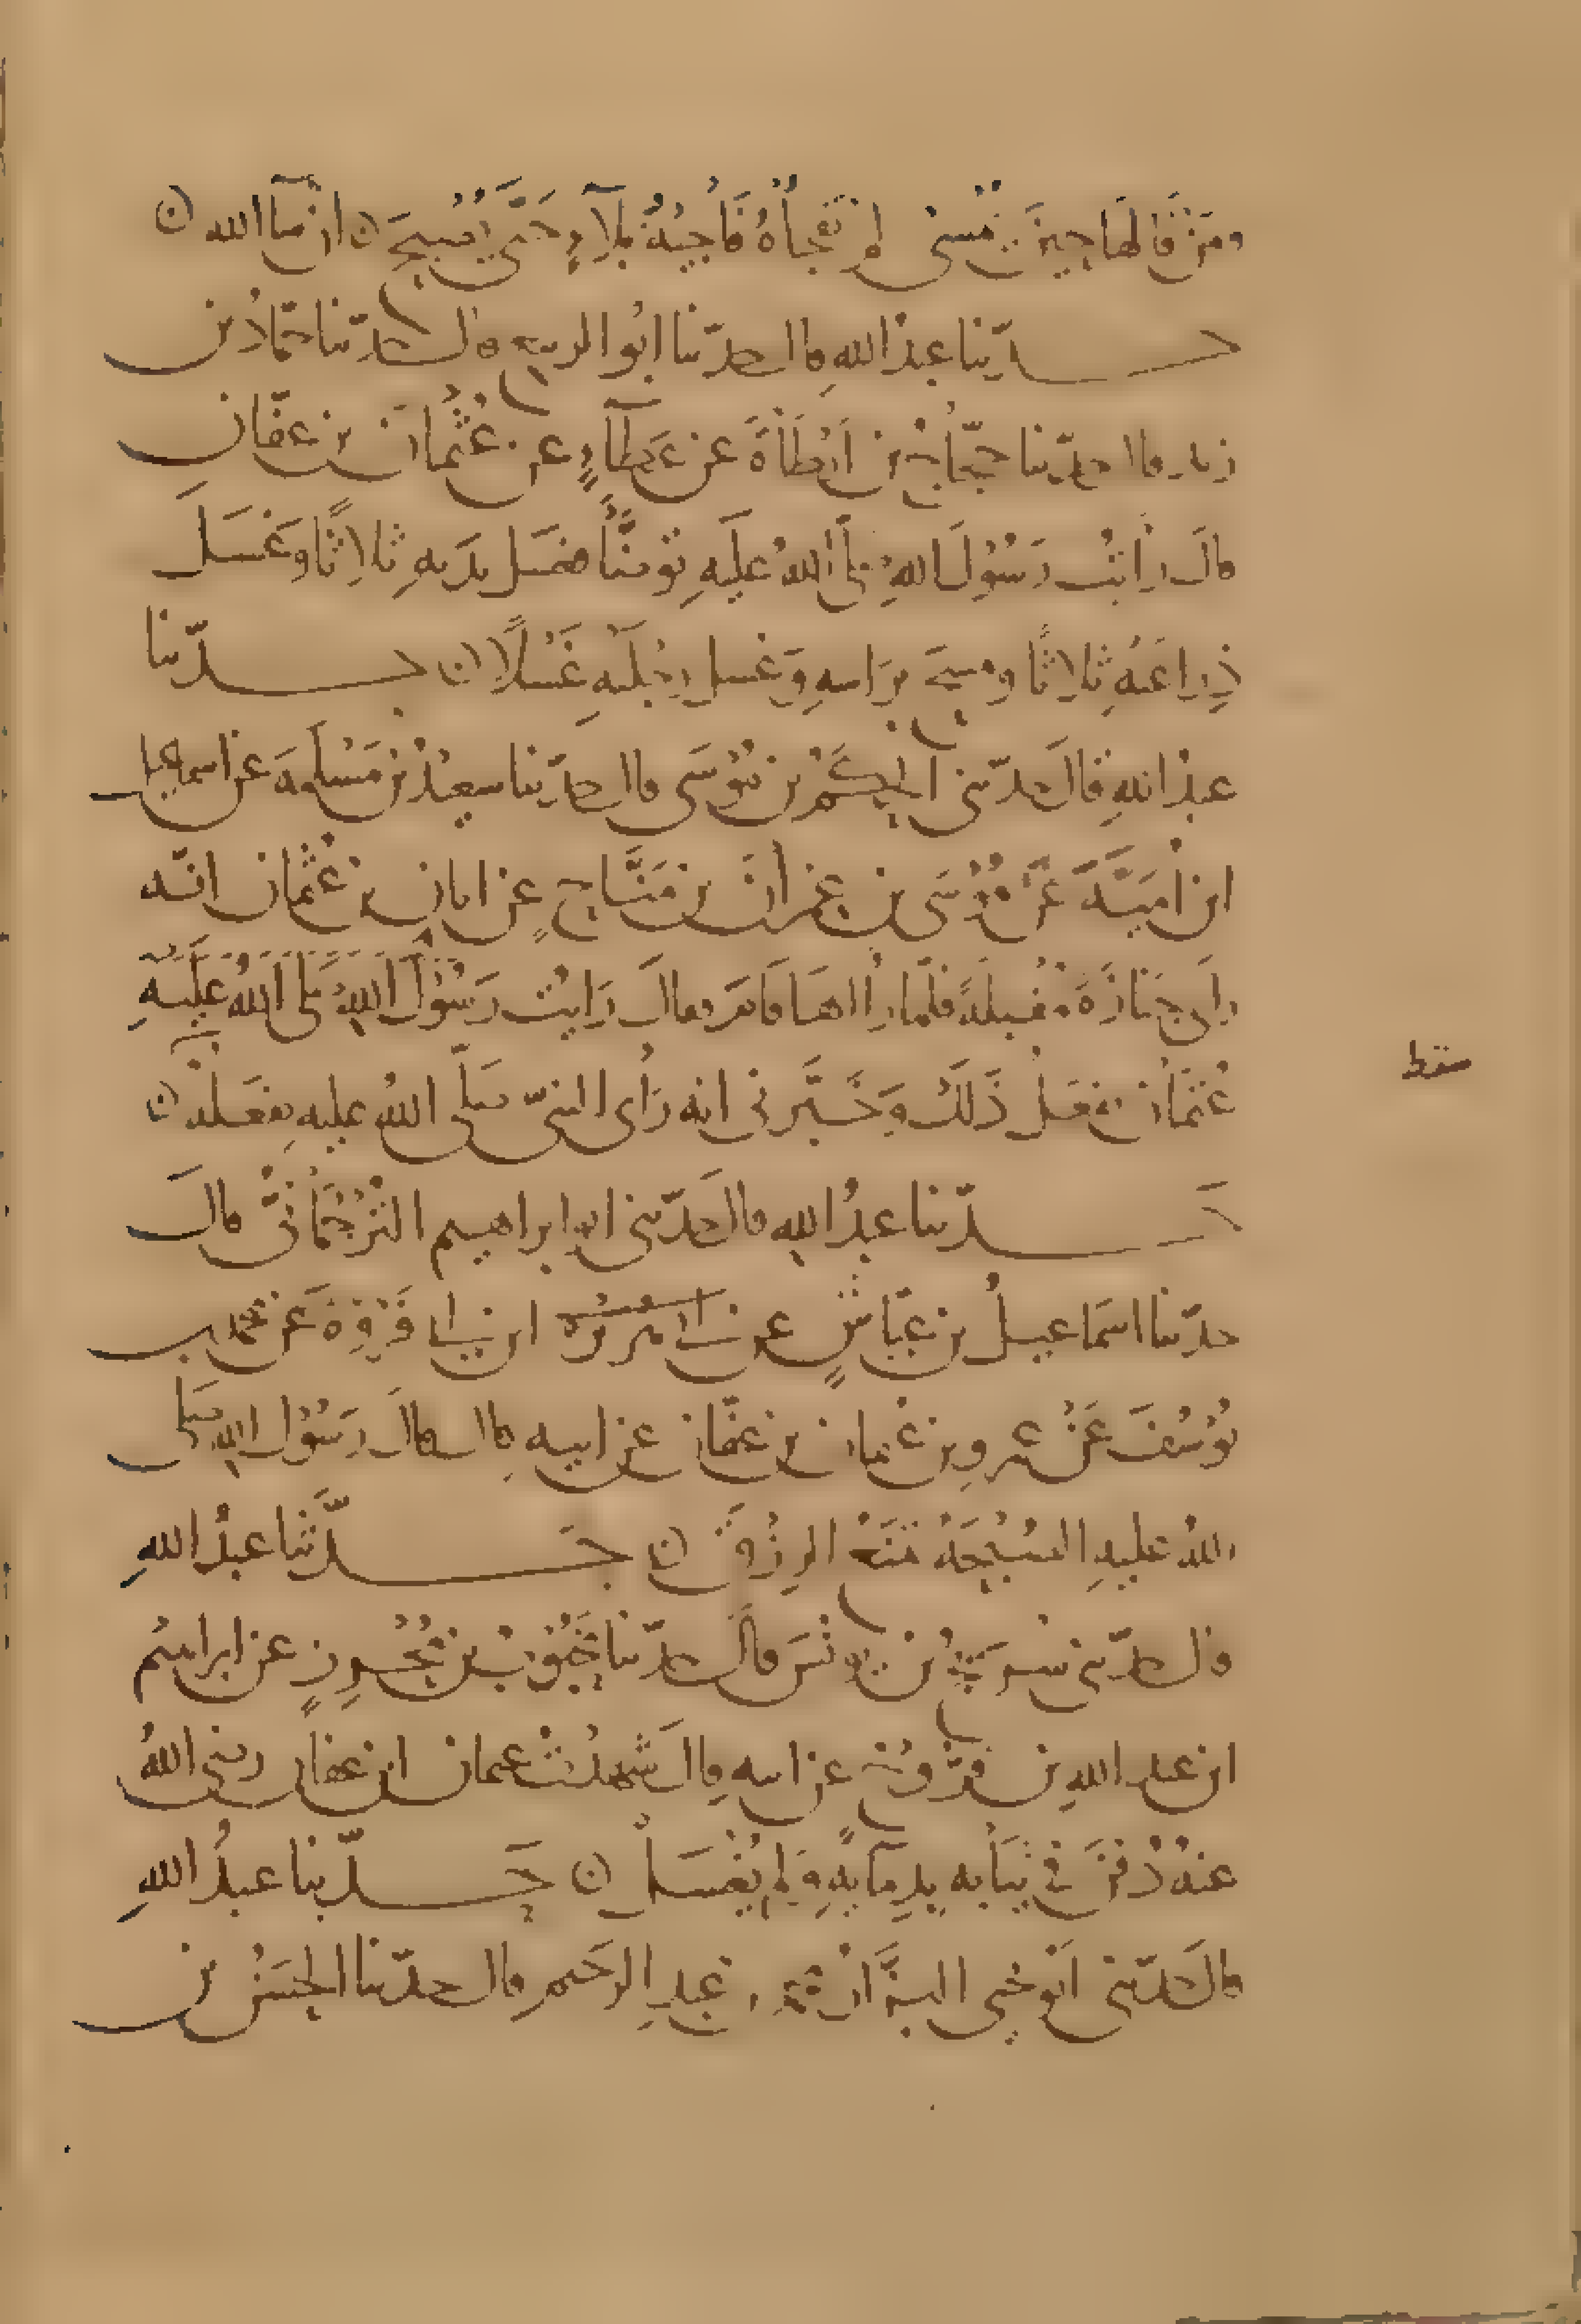 ومن قالها حين يمسي لم تفجأه فاجئة بلاء حتى يصبح ن ان شا الله ن
حدثنا عبد الله قال حدثنا ابو الربيع قال حدثنا حماد بن
زيد قال حدثنا حجاج بن ارطاة عن عطاء عن عثمان بن عفان
قال رأيت رسول الله صلى الله عليه توضأ فغسل يديه ثلاثا وغسل
ذراعيه ثلاثا ومسح براسه وغسل رجليه غسلا ن حدثنا
عبد الله قال حدثني الحكم بن موسى قال حدثنا سعيد بن مسلمه عن اسماعيل
ابن امية عن موسى بن عمران بن مناح عن ابان بن عثمان انه
رأى جنازة مقبلة فلما رااها قام فقال رايت رسول الله صلى الله عليه
سقط
عثمان يفعل ذلك وخبرني انه رأى النبي صلى الله عليه يفعله ن
حدثنا عبد الله قال حدثني ابو ابراهيم الترجماني قال
حدثنا اسماعيل بن عياش عن ابن ابي فروة عن محمد بن
يوسف عن عمرو بن عثمان بن عفان عن ابيه قال قال رسول الله صلى
الله عليه الصبحة تمنع الرزق ن حدثنا عبد الله
قال حدثني سريج بن يونس قال حدثنا محبوب بن محرز عن ابراهيم
ابن عبد الله بن فروخ عن ابيه قال شهدت عثمان ابن عفان رضي الله
عنه دفن في ثيابه بدمايه ولم يغسل ن حدثنا عبد الله
قال حدثني ابو يحيى البزاز عبد الرحيم قال حدثنا الحسن بن